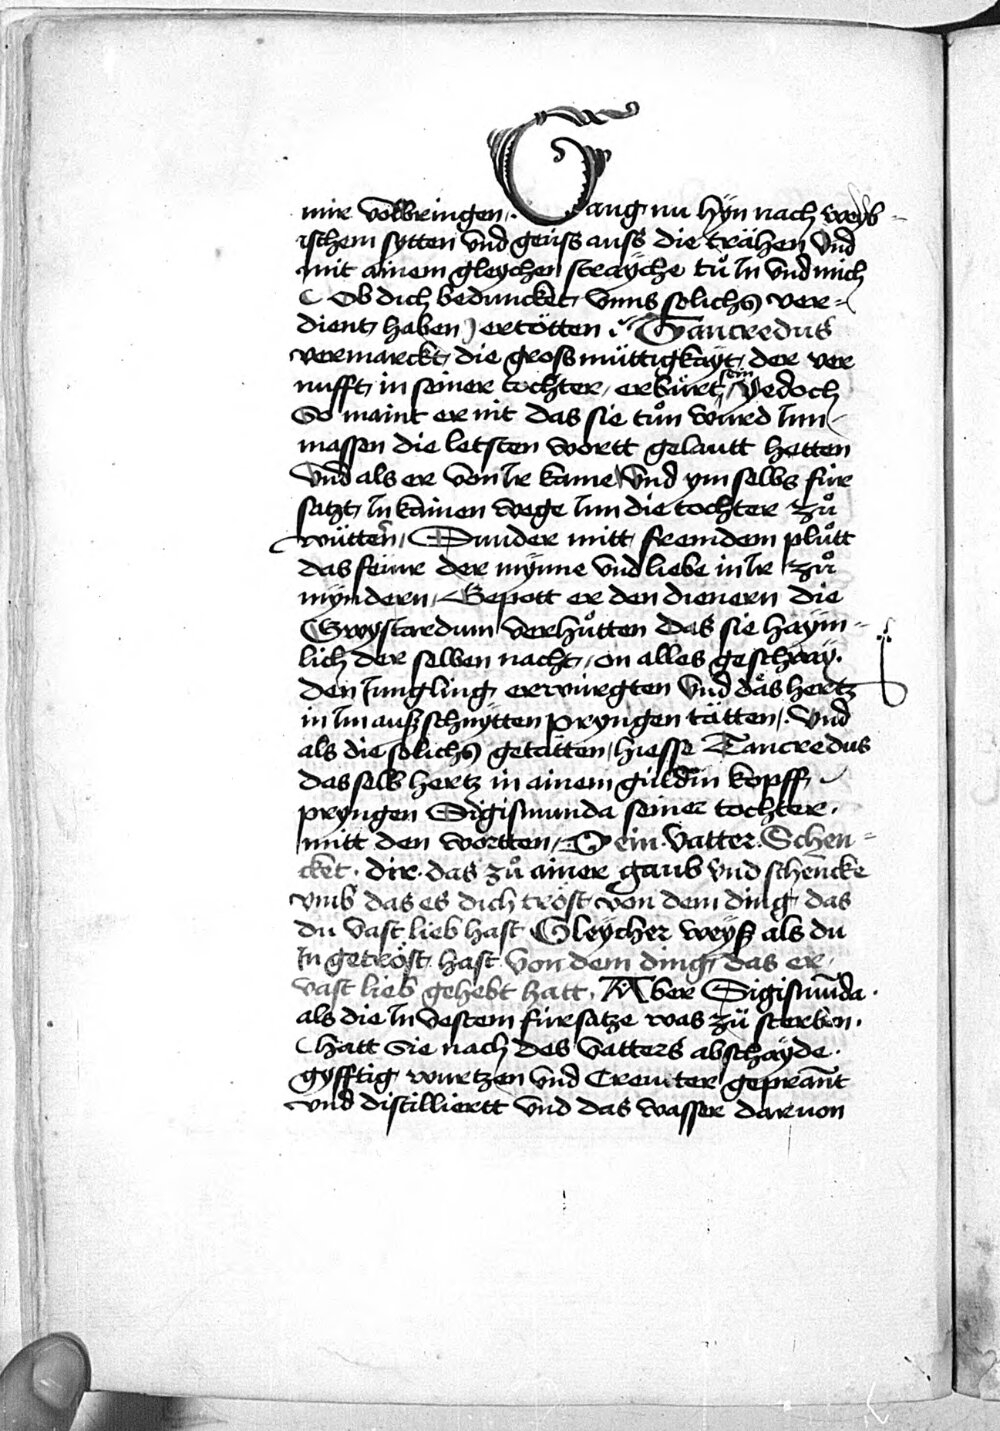 mir volbringen, Gang nu hyn nach weyb-
ischem sytten vnd geuss auss die trähen vnd
mit ainem gleychen strayche tů In vnd mich
( Ob dich beduncket, vnns solichs ver-
dient haben ) ertötten. Tancredus
vermarckt, die grossmüttigkayt, der ver
nufft, in seiner tochter, erbürt, sein, yedoch
So maint er nit das sie tůn würd Inn
massen die letsten wortt gelautt hetten
vnd als er von Ir kame, vnd ym selbs für
satzt, In kainen wege Inn die tochter zů
wütten, Sunder mitt fremdem plůtt
das feüur der mynne vnd liebe in Ir zů
myndern, Gepott er den dienern die
Gwystardum verhůtten das sie haym-
lich der selben nacht, on alles geschray.
den Jungling, erwürgten vnd das hertz
in Im außschnytten pryngen tätten, vnd
als die solichs getätten, hiesse Tancredus
das selb hertz in ainem guldin kopff,
pryngen Sigismunda seiner tochter.
mitt den wortten, Dein. vatter. Schen-
cket. dir. das zů ainer gaub vnd schencke
vmb das es dich tröst, von dem ding, das
du vast lieb hast Gleycher weyß als du
In getröst hast von dem ding, das er,
vast lieb gehebt hatt, Aber Sigismūda.
als die In vestem fürsatze was zů sterben.
hatt Sie nach des vatters abschayde.
gyfftig wurtzen vnd Creuter geprannt
vnd distilliertt vnd das wasser daruon